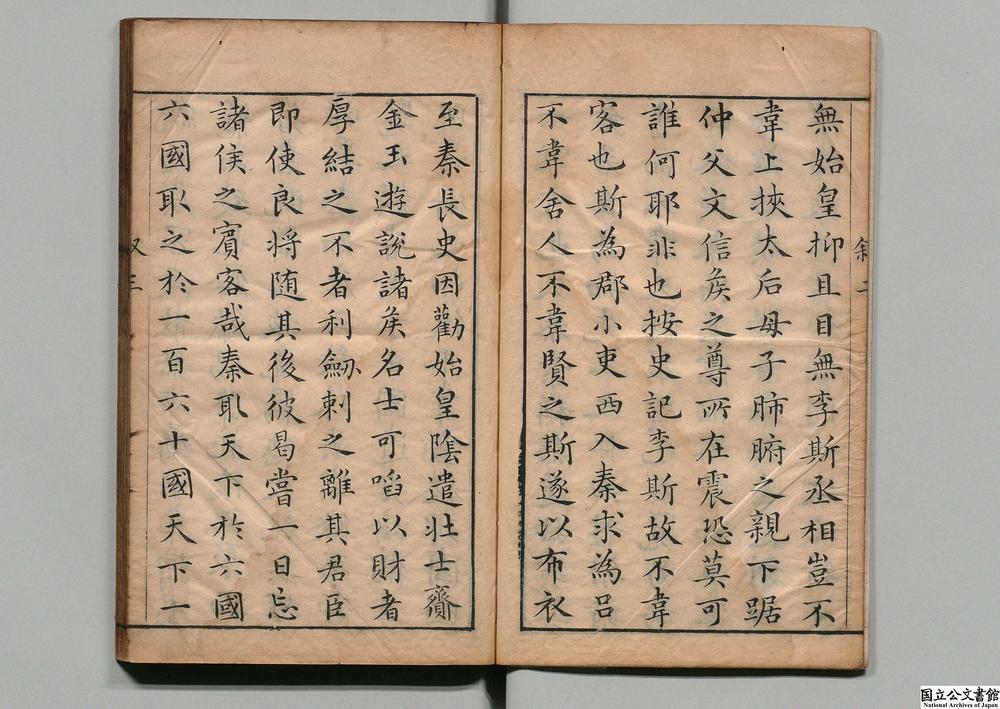 無始皇抑且目無李斯丞相豈不
韋上挾太后母子肺腑之親下踞
仲父文信矦之尊所在震恐莫可
誰何耶非也按史記李斯故不韋
客也斯為郡小吏西入秦求為呂
不韋舍人不韋賢之斯遂以布衣
至秦長史因勸始皇陰遣壯士齎
金玉遊說諸矦名士可啗以財者
厚結之不者利劔刺之離其君臣
即使良將随其後彼曷嘗一日忘
諸侯之賓客哉秦取天下於六國
六國取之於一百六十國天下一
叙二
叙三
国立公文書館
National Archives of Japan